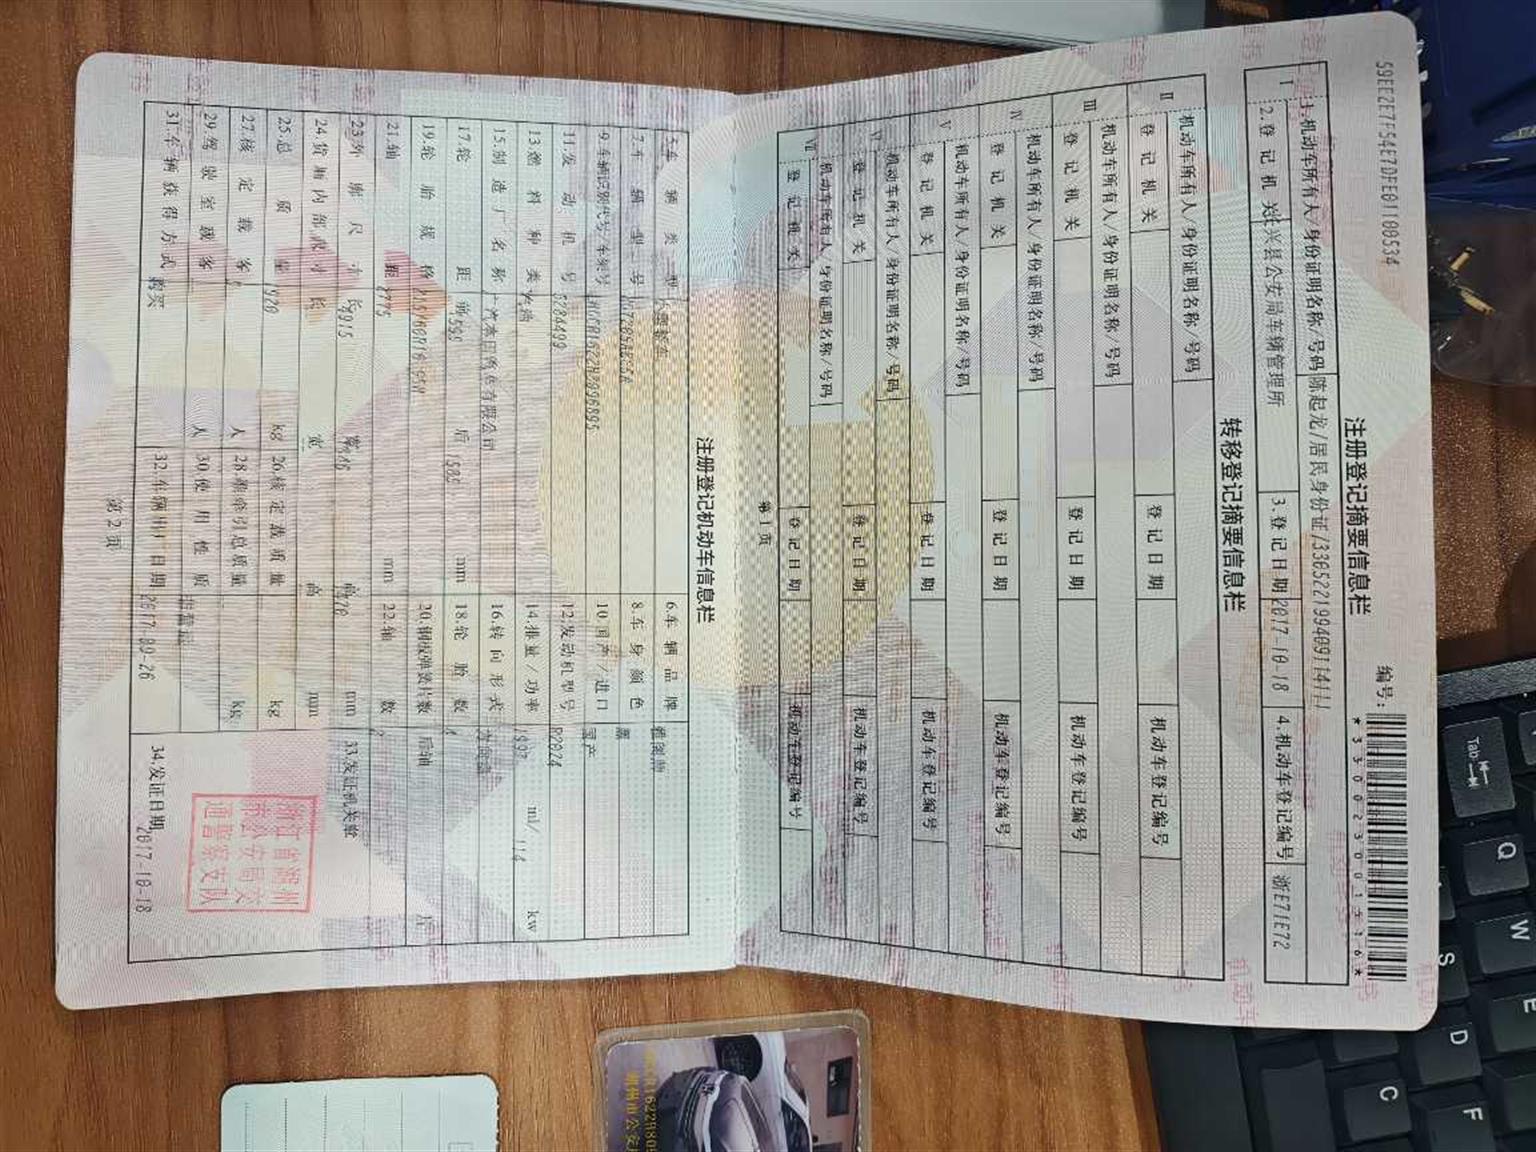 59EE2E7F54E7DFE01100534
注册登记摘要信息栏
编号：
*330023001516*
I
1.机动车所有人/身份证明名称/号码 陈起龙/居民身份证/330522199409114111
2.登记机关 长兴县公安局车辆管理所 3.登记日期 2017-10-18 4.机动车登记编号 浙E71E72
转移登记摘要信息栏
II
机动车所有人/身份证明名称/号码
登记机关 登记日期 机动车登记编号
III
机动车所有人/身份证明名称/号码
登记机关 登记日期 机动车登记编号
IV
机动车所有人/身份证明名称/号码
登记机关 登记日期 机动车登记编号
V
机动车所有人/身份证明名称/号码
登记机关 登记日期 机动车登记编号
机动车所有人/身份证明名称/号码
登记机关 登记日期 机动车登记编号
VI
机动车所有人/身份证明名称/号码
登记机关 登记日期 机动车登记编号
第1页
注册登记机动车信息栏
5.车辆类型 6.车辆品牌 雅阁牌
7.车辆型号 8.车身颜色 黑
9.车辆识别代号/车架号 10.国产/进口 国产
11.发动机号 8284499 12.发动机型号 R20Z4
13.燃料种类 汽油 14.排量/功率 1997 ml/ 114 kw
15.制造厂名称 广汽本田汽车有限公司 16.转向形式
17.轮距 前 1585 后 1585 mm 18.轮胎数 4
19.轮胎规格 215/60R16 95H 20.钢板弹簧片数 后轴 片
21.轴距 2775 mm 22.轴数 2
23.外廓尺寸 长 4915 宽 1845 高 1470 mm 33.发证机关章
24.货厢内部尺寸 长 宽 高 mm
25.总质量 1920 kg 26.核定载质量 kg
27.核定载客 人 28.准牵引总质量 kg
29.驾驶室载客 人 30.使用性质 非营运
31.车辆获得方式 购买 32.车辆出厂日期 2017-09-26 34.发证日期 2017-10-18
浙江省湖州
市公安局交
通警察支队
第2页
Tab
Q
W
E
S
D
C
F